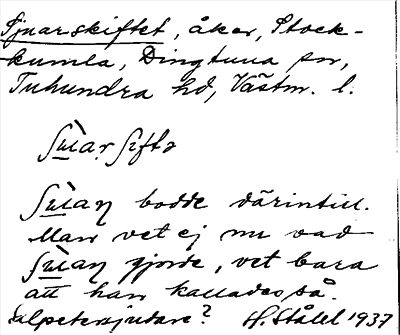 Sjuarskiftet, åker, Stock-
kumla, Dingtuna sn,
Tuhundra hd, Västm. l.
bodde därintill.
Man vet ej nu vad
gjorde, vet bara
att han kallades så.
Salpetersjudare? H. Ståhl 1937